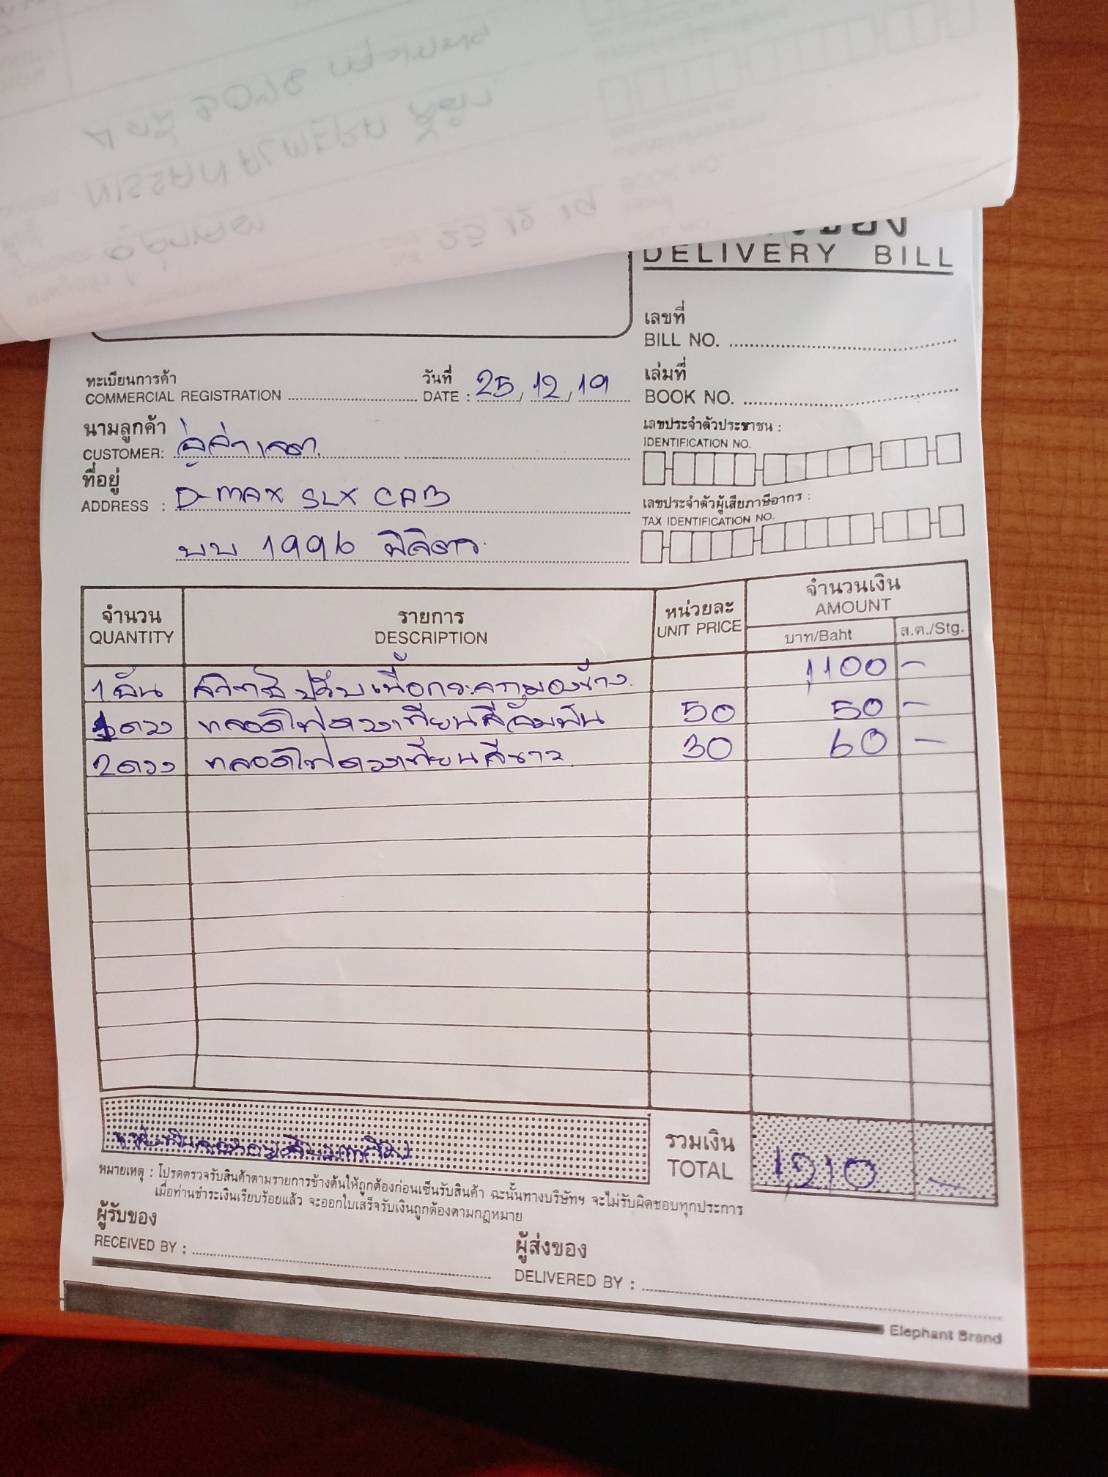 DELIVERY BILL
เลขที่
BILL NO.
ทะเบียนการค้า
COMMERCIAL REGISTRATION
วันที่
DATE : 25, 12, 19
เล่มที่
BOOK NO.
นามลูกค้า
CUSTOMER:
เลขประจำตัวประชาชน :
IDENTIFICATION NO.
ที่อยู่
ADDRESS : D-MAX SLX CAB
เลขประจำตัวผู้เสียภาษีอากร :
TAX IDENTIFICATION NO.
บบ 1996
จำนวน
QUANTITY
รายการ
DESCRIPTION
หน่วยละ
UNIT PRICE
จำนวนเงิน
AMOUNT
บาท/Baht
ส.ต./Stg.
1 อัน สวิทช์ปรับเนื้อกระจกมองข้าง 1100 -
1 ดวง หลอดไฟดวงเทียนสี 50 50 -
2 ดวง หลอดไฟดวงเทียนสีขาว 30 60 -
รวมเงิน
TOTAL
1,210 -
หมายเหตุ : โปรดตรวจรับสินค้าตามรายการข้างต้นให้ถูกต้องก่อนเซ็นรับสินค้า ฉะนั้นทางบริษัทฯ จะไม่รับผิดชอบทุกประการ
เมื่อท่านชำระเงินเรียบร้อยแล้ว จะออกใบเสร็จรับเงินถูกต้องตามกฎหมาย
ผู้รับของ
RECEIVED BY :
ผู้ส่งของ
DELIVERED BY :
Elephant Brand